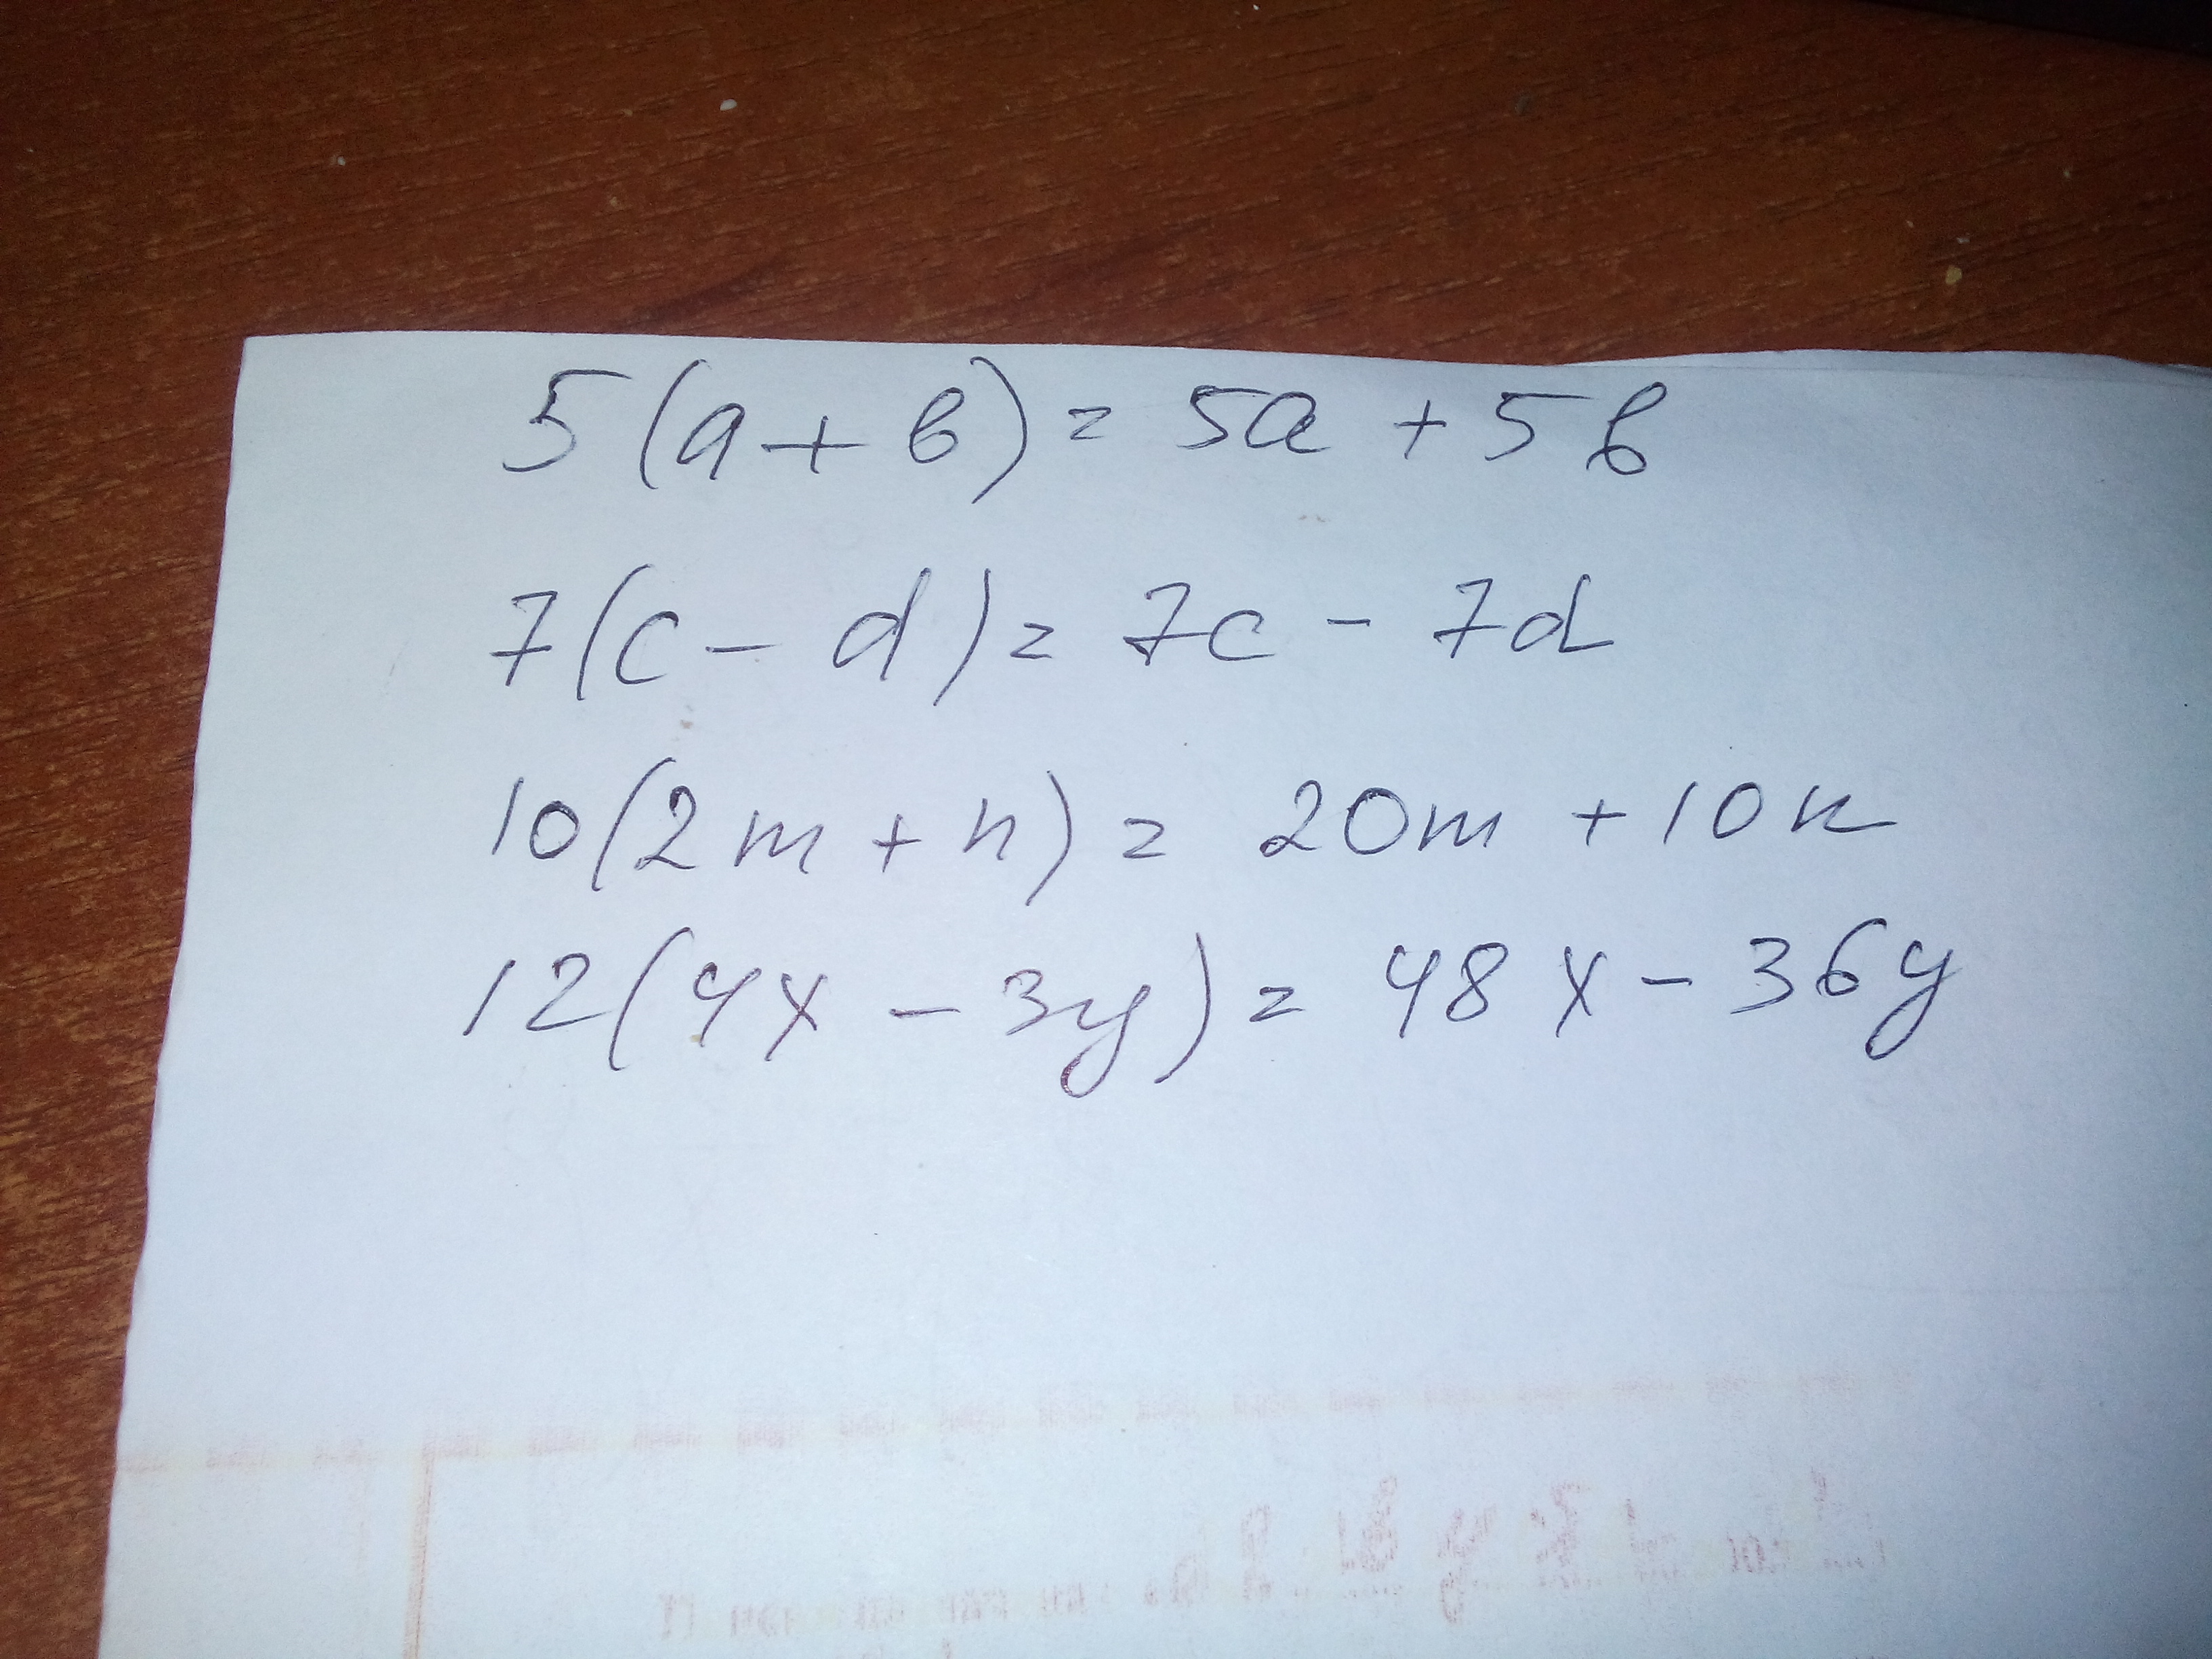 5(a+b)=5a+5b
7(c-d)=7c-7d
10(2m+n)=20m+10n
12(4x-3y)=48x-36y